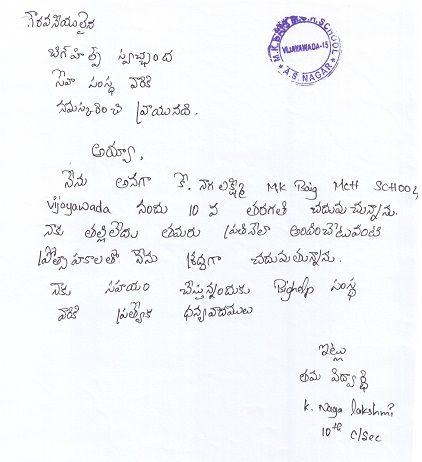 గౌరవనీయులైన
బిగ్ హెల్ప్ స్వచ్ఛంద
సేవా సంస్థ వారికి
నమస్కరించి వ్రాయునది.
M.K. SCHOOL
VIJAYAWADA-15
★ A.S. NAGAR ★
అయ్యా,
నేను అనగా కే. నాగ లక్ష్మి MK Baig McH SCHOOL
vijayawada నందు 10 వ తరగతి చదువు చున్నాను.
నాకు తల్లి లేదు తమరు ప్రతినెలా అందించేటువంటి
ప్రోత్సాహకాలతో నేను శ్రద్ధగా చదువుతున్నాను.
నాకు సహయం చేస్తున్నందుకు Bighelp సంస్థ
వారికి ప్రత్యేక ధన్యవాదములు
ఇట్లు
తమ విద్యార్థి
K. Naga lakshmi
10th c/sec